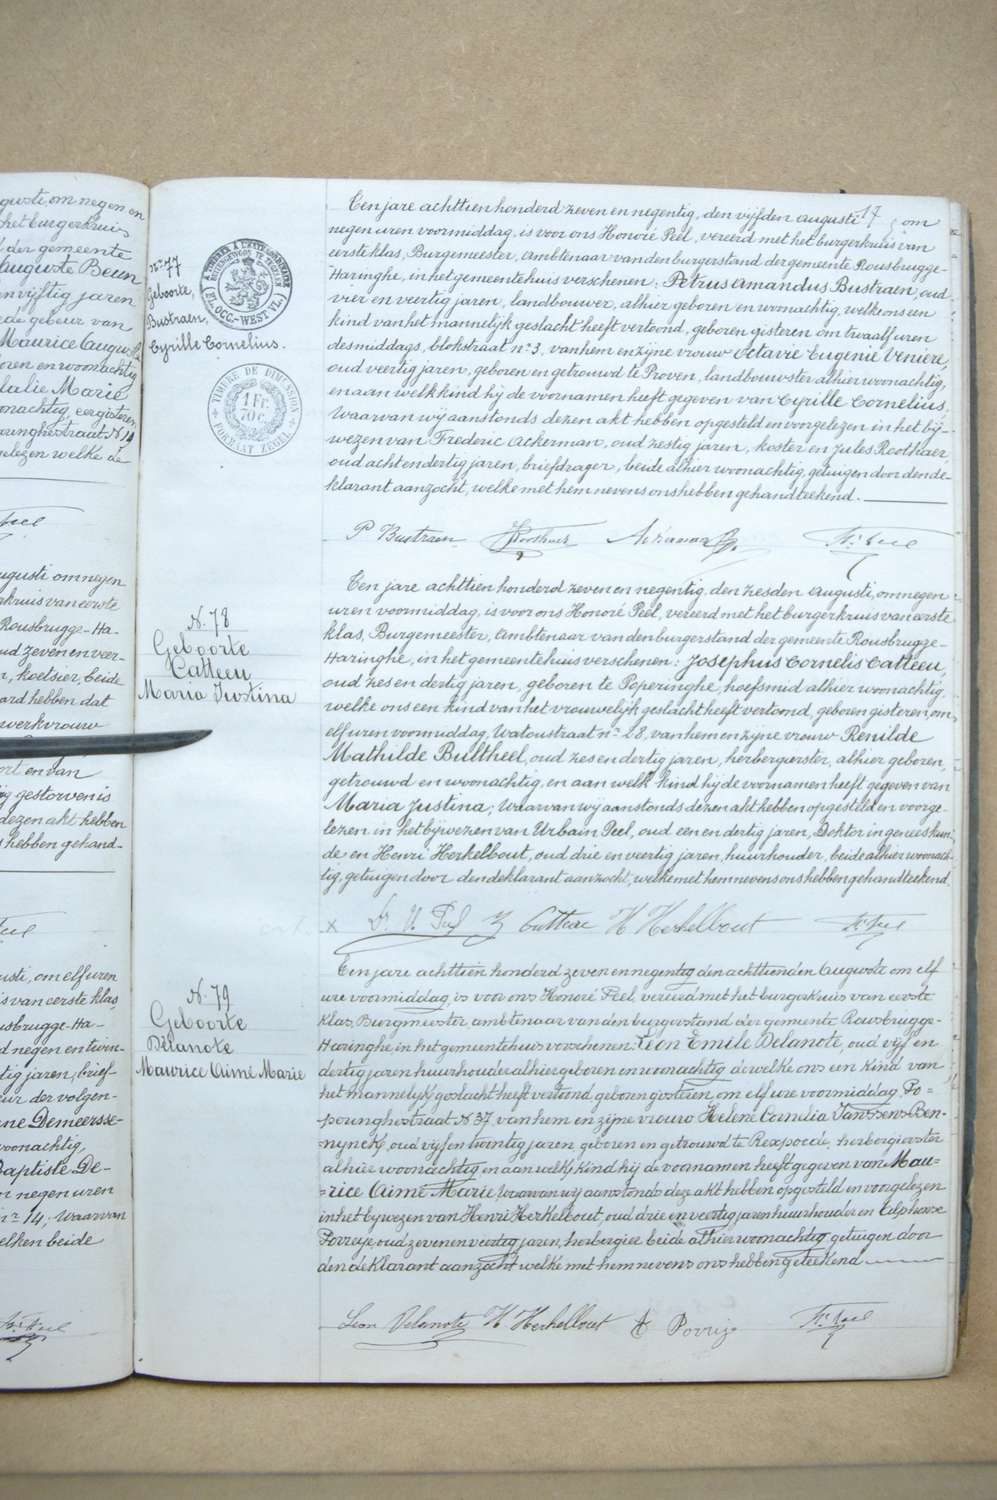 guste, om negen en
het burgerkruis
der gemeente
Auguste Beun
en vijftig jaren
rde gebeur van
Maurice August
oren en woonachtig
halie Marie
onachtig, eergisteren
pouringhestraat N 14
gelezen welke de
ugusti om negen
rkruis van eerste
Rousbrugge-Ha-
ud zeven en veer-
n, koetsier, beide
ard hebben dat
werkvrouw
ort en van
ig gestorven is
dezen akt hebben
s hebben gehand-
usti, om elf uren
is van eerste klas,
usbrugge-Ha-
d negen en twin-
tig jaren, brief-
eur der volgen-
ne Demeersse-
woonachtig,
Baptiste De-
or negen uren
nr 14. Waarvan
elken beide
No 77
Geboorte,
Bustraen,
Cyrille Cornelius.
TIMBRE DE DIMENSION
1 FR. 70 C.
FORMAAT ZEGEL
17
Een jare achttien honderd zeven en negentig, den vijfden augusti, om
negen uren voormiddag, is voor ons Honoré Peel, vereerd met het burgerkruis van
eerste klas, Burgemeester, ambtenaar van den burgerstand der gemeente Rousbrugge-
Haringhe, in het gemeentehuis verschenen: Petrus Armandus Bustraen, oud
vier en veertig jaren, landbouwer, alhier geboren en woonachtig, welke ons een
kind van het mannelijk geslacht heeft vertoond, geboren gisteren om twaalf uren
des middags, blokstraat no 3, van hem en zijne vrouw Octavie Eugenie Veniere,
oud veertig jaren, geboren en getrouwd te Proven, landbouwster alhier woonachtig,
en aan welk kind hij de voornamen heeft gegeven van Cyrille Cornelius.
Waarvan wij aanstonds dezen akt hebben opgesteld en voorgelezen in het bij-
wezen van Frederic Ackerman, oud zestig jaren, koster en Jules Roothaer,
oud acht en dertig jaren, briefdrager, beide alhier woonachtig, getuigen door den de-
klarant aanzocht, welke met hem nevens ons hebben gehandteekend.
P Bustraen
N. 78
Geboorte
Catteeu
Maria Justina
Een jare achttien honderd zeven en negentig, den zesden Augusti, om negen
uren voormiddag, is voor ons Honoré Peel, vereerd met het burgerkruis van eerste
klas, Burgemeester, ambtenaar van den burgerstand der gemeente Rousbrugge-
Haringhe, in het gemeentehuis verschenen: Josephus Cornelis Catteeu,
oud zes en dertig jaren, geboren te Poperinghe, hoefsmid alhier woonachtig,
welke ons een kind van het vrouwelijk geslacht heeft vertoond, geboren gisteren, om
elf uren voormiddag, Watoustraat no 28, van hem en zijne vrouw Renilde
Mathilde Bultheel, oud zes en dertig jaren, herbergierster, alhier geboren,
getrouwd en woonachtig, en aan welk kind hij de voornamen heeft gegeven van
Maria Justina; Waarvan wij aanstonds dezen akt hebben opgesteld en voorge-
lezen in het bijwezen van Urbain Peel, oud een en dertig jaren, Doktor in geneeskun-
de en Henri Herkelbout, oud drie en veertig jaren, huurhouder, beide alhier woonach-
tig, getuigen door den deklarant aanzocht, welke met hem nevens ons hebben gehandteekend.
Dr U Peel J Catteeu H Herkelbout Hré Peel
N. 79
Geboorte
Delanote
Maurice Aimé Marie
Een jare achttien honderd zeven en negentig den achttienden Auguste om elf
ure voormiddag, is voor ons Honoré Peel, vereerd met het burgerkruis van eerste
klas, Burgmeester, ambtenaar van den burgerstand der gemeente Rousbrugge-
Haringhe in het gemeentehuis verschenen: Léon Emile Delanote, oud vijf en
dertig jaren huurhouder alhier geboren en woonachtig dewelke ons een kind van
het mannelijk geslacht heeft vertoond geboren gisteren om elf ure voormiddag, Po-
peringhestraat N 37, van hem en zijne vrouw Helene Cornelia Janssens Ben-
nynck, oud vijf en twintig jaren geboren en getrouwd te Rexpoede, herbergierster
alhier woonachtig en aan welk kind hij de voornamen heeft gegeven van Mau-
rice Aimé Marie Waarvan wij aanstonds deze akt hebben opgesteld en voorgelezen
in het bijwezen van Henri Herkelbout, oud drie en veertig jaren huurhouder en Alphonse
Povreye oud zeven en veertig jaren, herbergier beide alhier woonachtig getuigen door
den deklarant aanzocht welke met hem nevens ons hebben geteekend
Leon Delanote H Herkelbout A Hré Peel